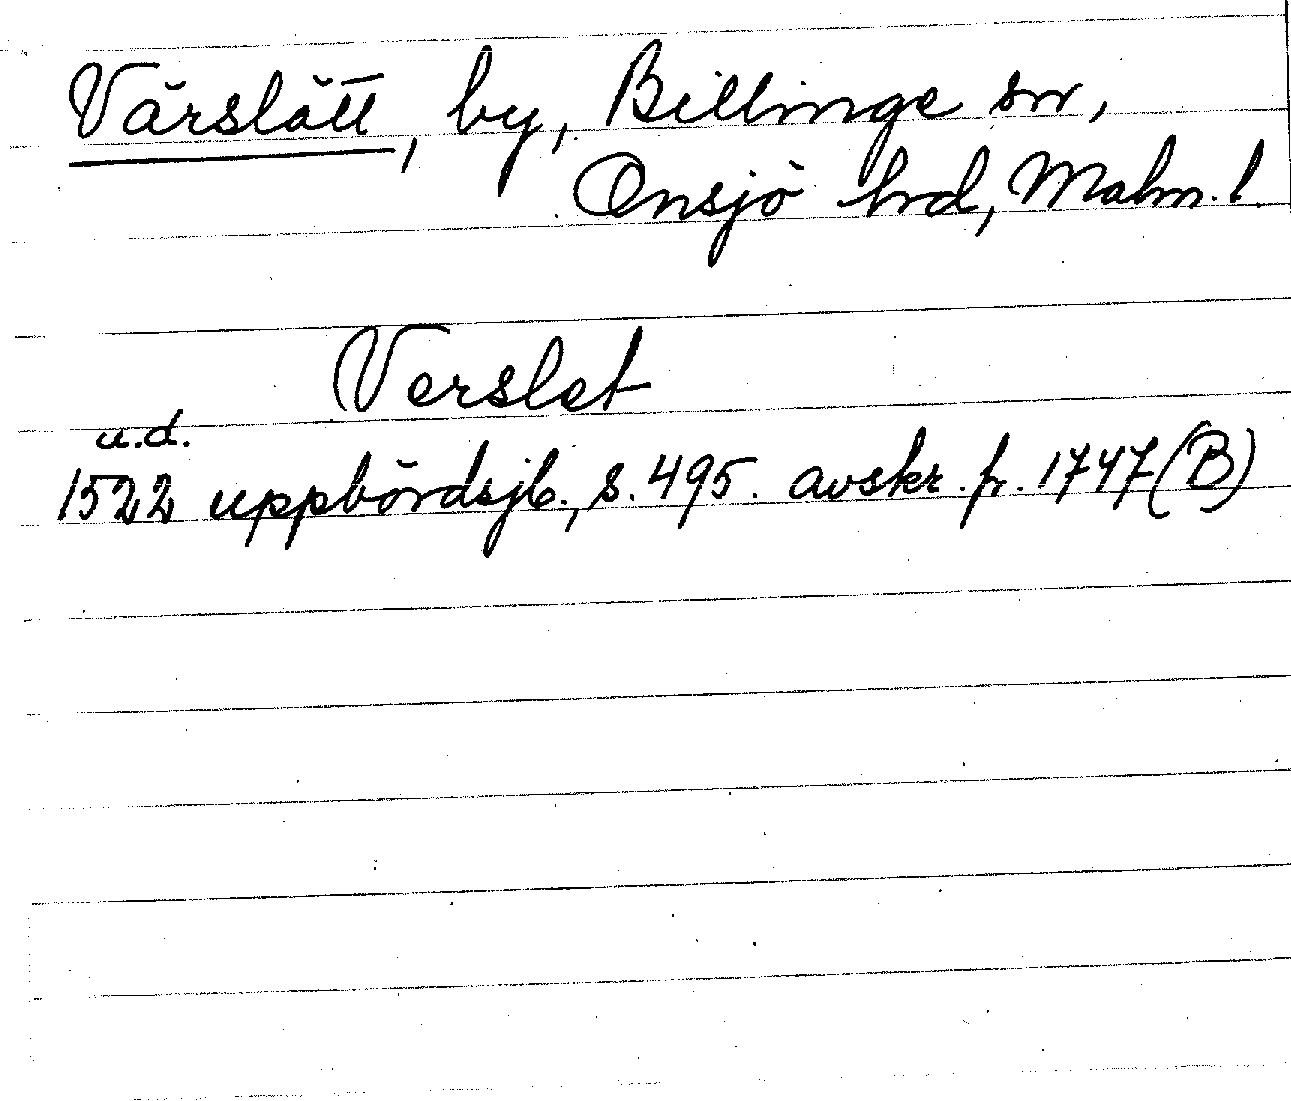 Värslätt, by, Billinge sn,
Onsjö hrd, Malm. l.
Verslet
u.d.
1522 uppbördsjb., s. 495. avskr. fr. 1747 (B)